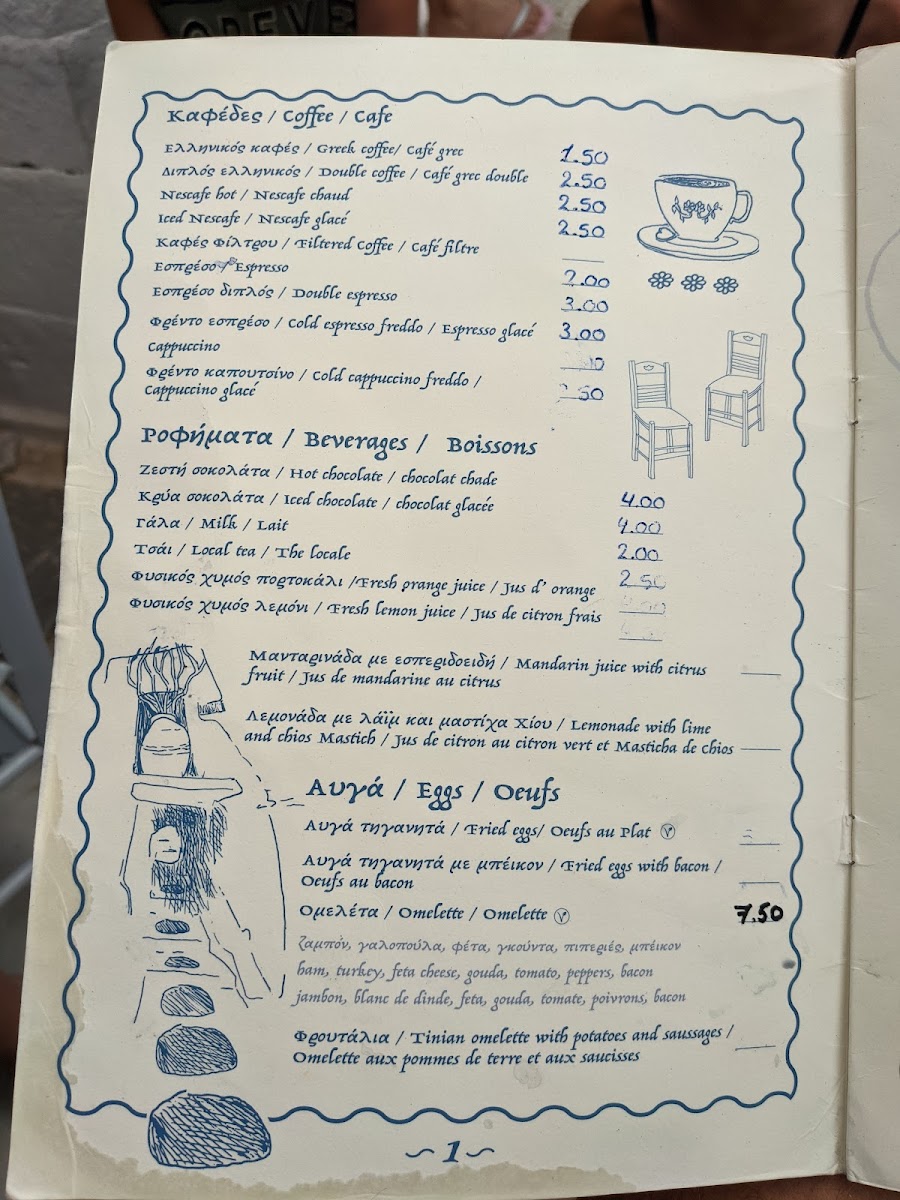 Καφέδες / Coffee / Cafe
Ελληνικός καφές / Greek coffee/ Café grec 1.50
Διπλός ελληνικός / Double coffee / Café grec double 2.50
Nescafe hot / Nescafe chaud 2.50
Iced Nescafe / Nescafe glacé 2.50
Καφές Φίλτρου / Filtered Coffee / Café filtre
Εσπρέσο / Espresso 2.00
Εσπρέσο διπλός / Double espresso 3.00
Φρέντο εσπρέσο / Cold espresso freddo / Espresso glacé 3.00
Cappuccino
Φρέντο καπουτσίνο / Cold cappuccino freddo /
Cappuccino glacé
Ροφήματα / Beverages / Boissons
Ζεστή σοκολάτα / Hot chocolate / chocolat chade 4.00
Κρύα σοκολάτα / Iced chocolate / chocolat glacée 4.00
Γάλα / Milk / Lait 2.00
Τσάι / Local tea / The locale 2.50
Φυσικός χυμός πορτοκάλι /Fresh prange juice / Jus d' orange
Φυσικός χυμός λεμόνι / Fresh lemon juice / Jus de citron frais
Μανταρινάδα με εσπεριδοειδή / Mandarin juice with citrus
fruit / Jus de mandarine au citrus
Λεμονάδα με λάϊμ και μαστίχα Χίου / Lemonade with lime
and chios Mastich / Jus de citron au citron vert et Masticha de chios
Αυγά / Eggs / Oeufs
Αυγά τηγανητά / Fried eggs/ Oeufs au Plat V
Αυγά τηγανητά με μπέικον / Fried eggs with bacon /
Oeufs au bacon
Ομελέτα / Omelette / Omelette V 7.50
ζαμπόν, γαλοπούλα, φέτα, γκούντα, πιπεριές, μπέικον
ham, turkey, feta cheese, gouda, tomato, peppers, bacon
jambon, blanc de dinde, feta, gouda, tomate, poivrons, bacon
Φρουτάλια / Tinian omelette with potatoes and saussages /
Omelette aux pommes de terre et aux saucisses
~1~